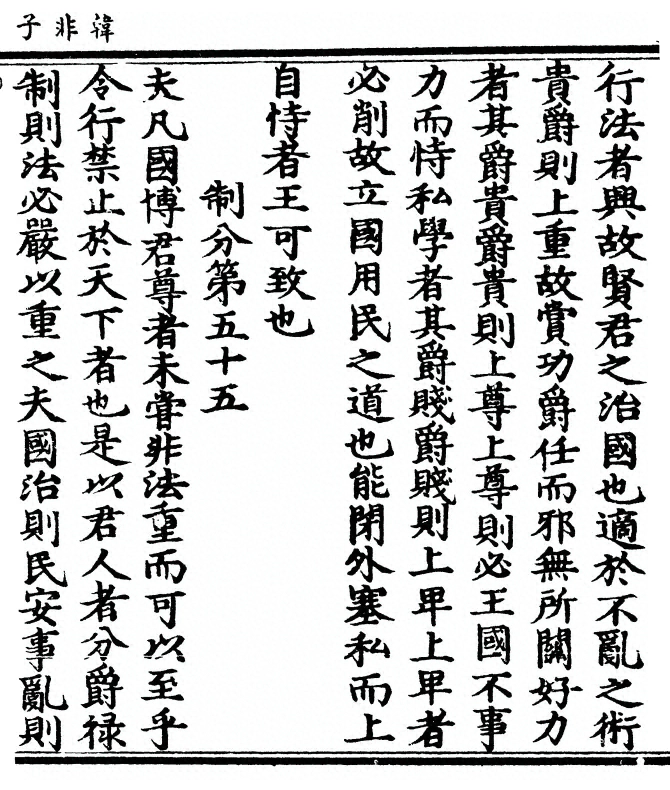 韓非子
行法者興故賢君之治國也適於不亂之術
貴爵則上重故賞功爵任而邪無所關好力
者其爵貴爵貴則上尊上尊則必王國不事
力而恃私學者其爵賤爵賤則上卑上卑者
必削故立國用民之道也能閉外塞私而上
自恃者王可致也
制分第五十五
夫凡國博君尊者未嘗非法重而可以至乎
令行禁止於天下者也是以君人者分爵祿
制則法必嚴以重之夫國治則民安事亂則